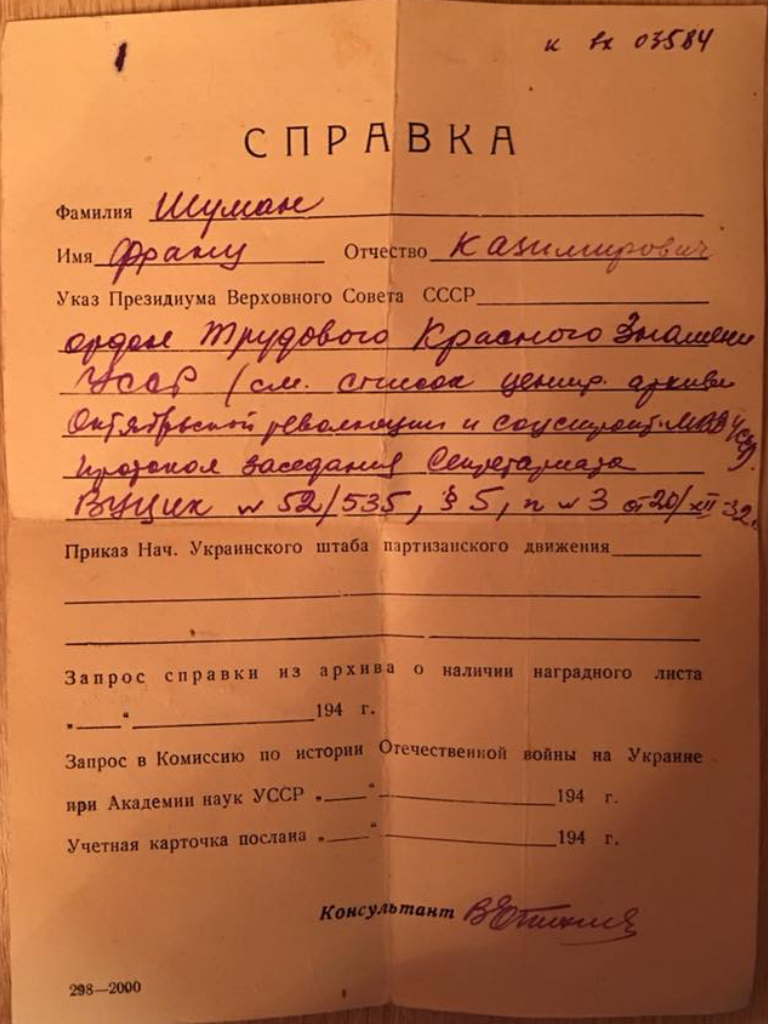 1
к вх 03584
СПРАВКА
Фамилия Шуман
Имя Франц Отчество Казимирович
Указ Президиума Верховного Совета СССР
орден Трудового Красного Знамени
УССР (см. список центр. архива
Октябрьской революции и соцстроит. МВД УССР).
протокол заседания Секретариата
ВУЦИК № 52/535, § 5, п № 3 от 20/XII 32г.
Приказ Нач. Украинского штаба партизанского движения
Запрос справки из архива о наличии наградного листа
„ “ 194 г.
Запрос в Комиссию по истории Отечественной войны на Украине
при Академии наук УССР „ “ 194 г.
Учетная карточка послана „ “ 194 г.
Консультант
298—2000